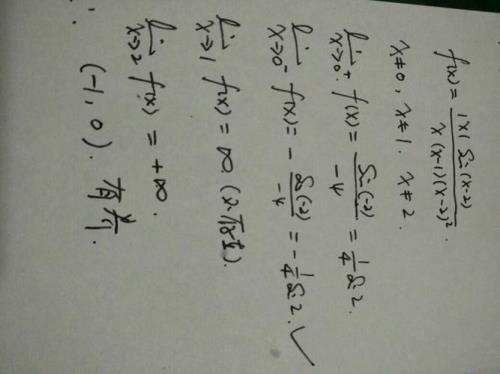 f(x) = |x| sin(x-2) / x(x-1)(x-2)².
x≠0, x≠1. x≠2.
lim x→0⁺ f(x) = sin(-2) / -4 = 1/4 sin2.
lim x→0⁻ f(x) = - sin(-2) / -4 = -1/4 sin2. ✓
lim x→1 f(x) = ∞.
lim x→2 f(x) = +∞.
∴ (-1, 0). 有界.